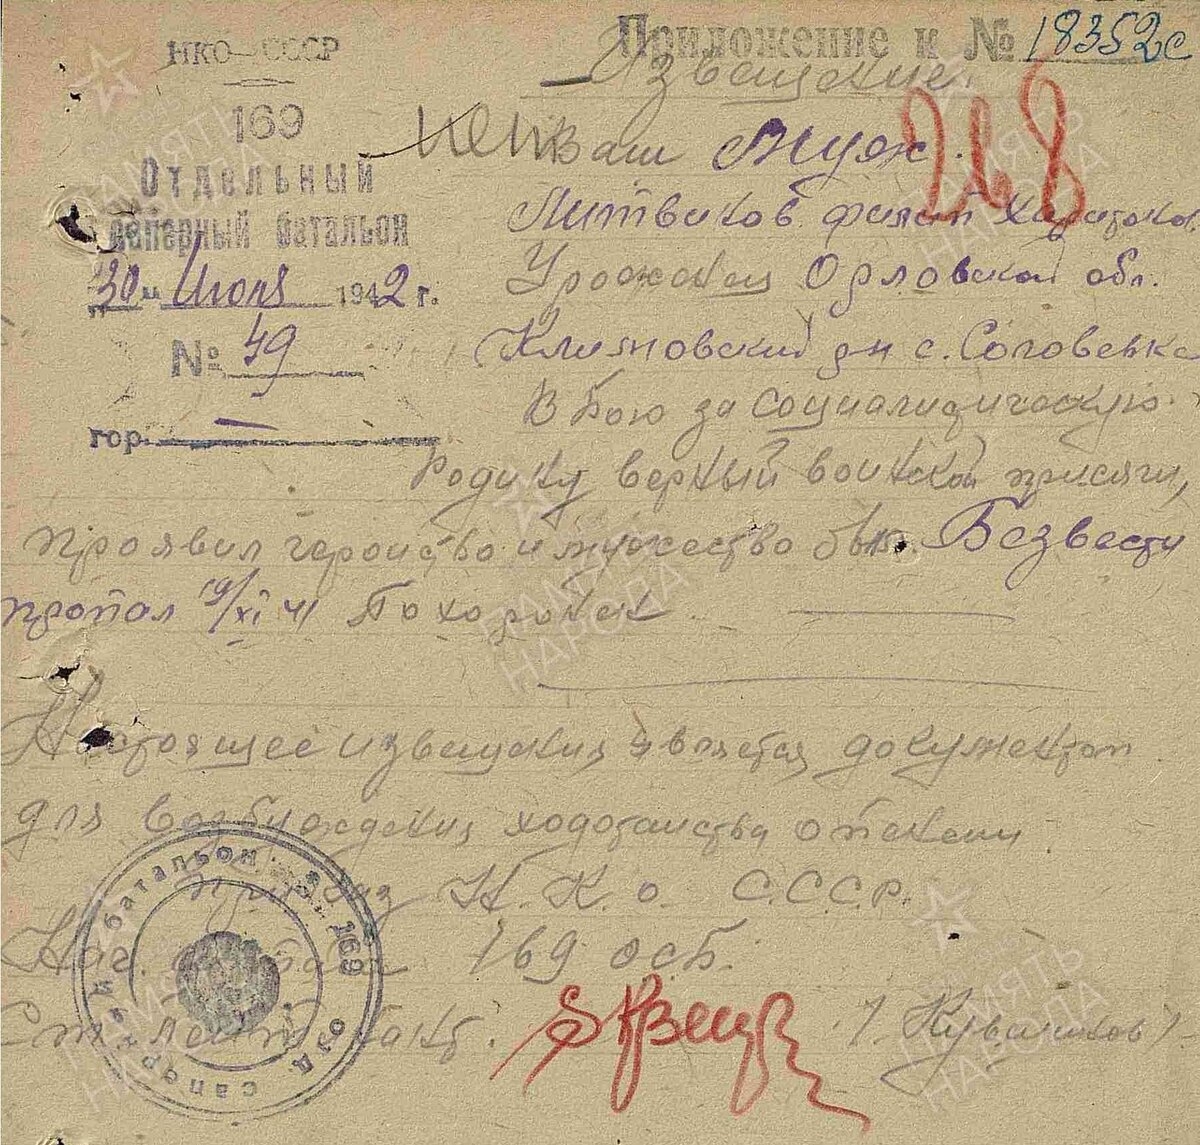 НКО–СССР
169
Отдельный
саперный батальон
"30" Июня 1942 г.
№ 49
гор.
Приложение к № 18352с
Извещение.
Ваш Муж.
268
Литвинов
Уроженец Орловской обл.
Климовский рн с. Соловевка
В Бою за социалистическую
Родину верный воинской присяги,
проявил геройство и мужество был. Безвести
пропал 19/XI 41 Похоронен
Настоящее извещения является документом
для возбуждения ходотайства о пенсии
приказ Н.К.О. С.С.С.Р.
Нач. штаба 169 осб.
Ст. Лейтенант
169 отд саперный батальон
ПАМЯТЬ НАРОДА